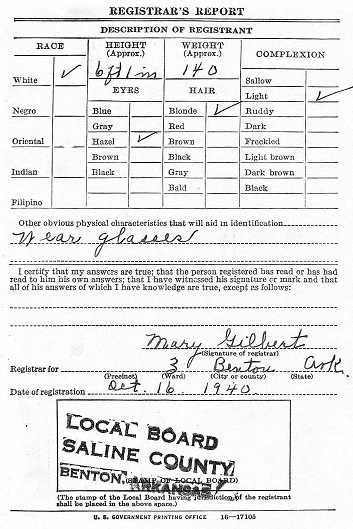 REGISTRAR'S REPORT
DESCRIPTION OF REGISTRANT
RACE HEIGHT (Approx.) WEIGHT (Approx.) COMPLEXION
White ✓ 6 ft 1 in 140
EYES HAIR Sallow
Light ✓
Negro Blue Blonde ✓ Ruddy
Gray Red Dark
Oriental Hazel ✓ Brown Freckled
Brown Black Light brown
Indian Black Gray Dark brown
Bald Black
Filipino
Other obvious physical characteristics that will aid in identification
Wear glasses
I certify that my answers are true; that the person registered has read or has had
read to him his own answers; that I have witnessed his signature or mark and that
all of his answers of which I have knowledge are true, except as follows:
Mary Gilbert
(Signature of registrar)
Registrar for 3 Benton Ark.
(Precinct) (Ward) (City or county) (State)
Date of registration Oct. 16 1940
LOCAL BOARD
SALINE COUNTY
BENTON, ARKANSAS
(STAMP OF LOCAL BOARD)
(The stamp of the Local Board having jurisdiction of the registrant
shall be placed in the above space.)
U. S. GOVERNMENT PRINTING OFFICE 16—17105